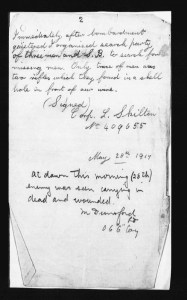 2
Immediately after bombardment
quietened I organised search party
of three men and S.B. to search for
missing men. Only trace of men was
two rifles which they found in a shell
hole in front of our wire.
(Signed)
Corp. L. Skilton
No 409655
May 28th 1917
At dawn this morning (28th)
enemy was seen carrying in
dead and wounded.
Lt
O.C. "C" Coy